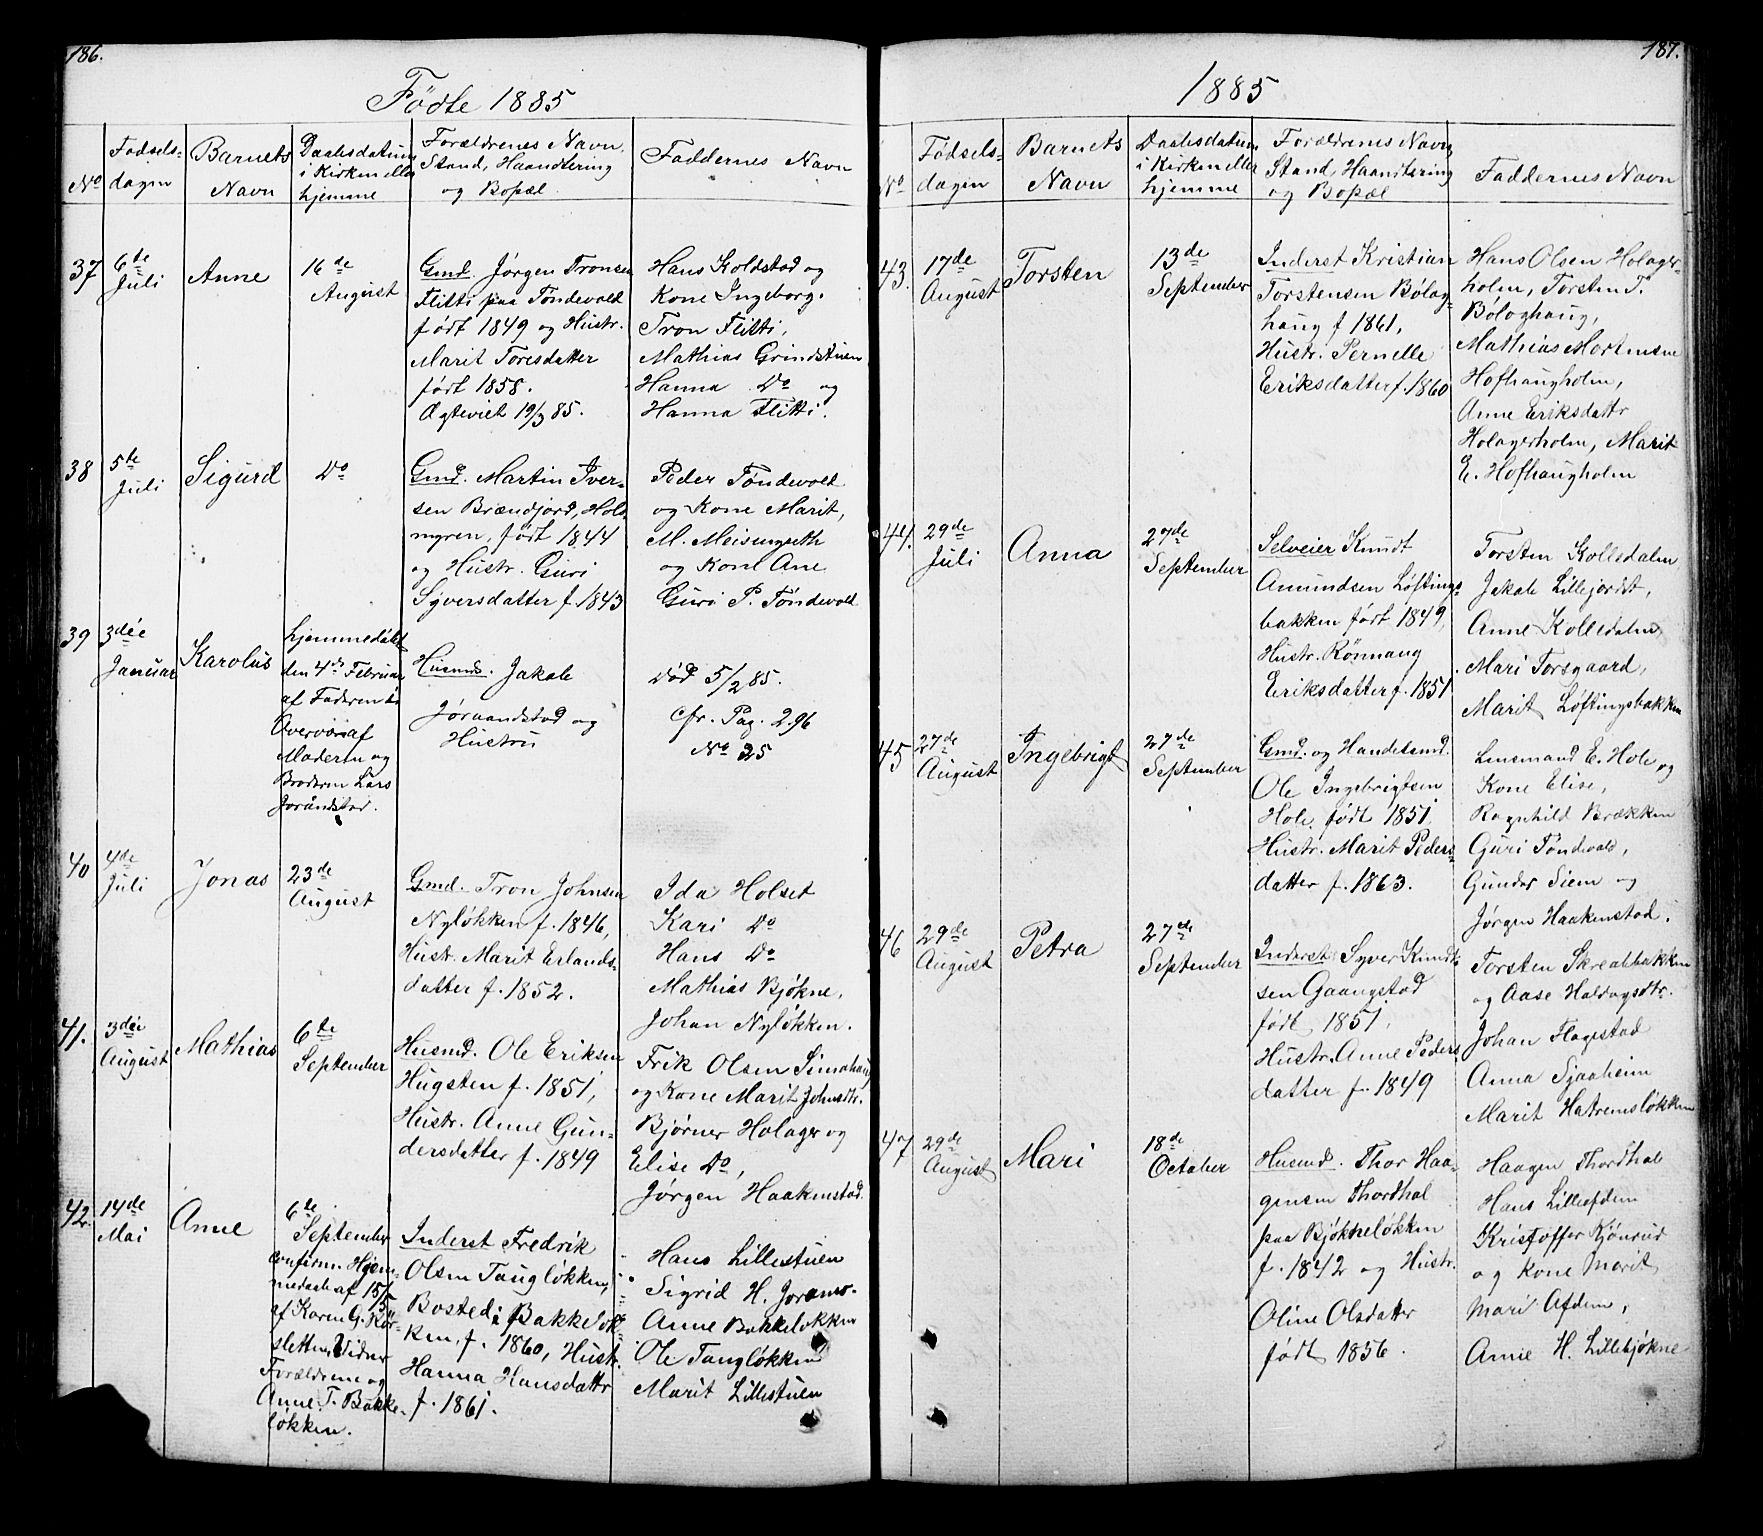 186.
Födte 1885
No
Fødsels-
dagen
Barnets
Navn
Daabsdatum
i Kirken eller
hjemme
Forældrenes Navn,
Stand, Haandtering
og Bopæl
Faddernes Navn
37
6te
Juli
Anne
16de
August
Gmd. Jørgen Tronsen
Flitti paa Töndevold
født 1849 og Hustr.
Marit Toresdatter
født 1858.
Ægteviet 19/3 85.
Hans Koldstad og
Kone Ingeborg.
Tron Flitti,
Mathias Grindstuen
Hanna Do og
Hanna Flitti.
38
5te
Juli
Sigurd
Do
Gmd. Martin Iver-
sen Brændjord, Hol-
myren, født 1844
og Hustr. Guri
Syversdatter f. 1843
Peder Töndevold
og Kone Marit,
M. Meisingseth
og Kone Ane
Guri P. Töndevold
39
3die
Januar
Karolus
hjemmedøbt
den 4de Februar
af Faderen i
Overvær af
Moderen og
Broderen Lars
Jorandstad.
Husmd. Jakob
Joraandstad og
Hustru
død 5/2 85.
cfr. Pag. 296
No 25
40
4de
Juli
Jonas
23de
August
Gmd. Tron Johnsen
Nyløkken f. 1846,
Hustr. Marit Erlands-
datter f. 1852.
Ida Holset
Kari Do
Hans Do
Mathias Bjøkne,
Johan Nyløkken.
41.
3die
August
Mathias
6te
September
Husmd. Ole Eriksen
Hugsten f. 1851,
Hustr. Anne Gun-
dersdatter f. 1849
Erik Olsen
og Kone Marit Johnsdtr.
Bjørner Holager og
Elise Do,
Jørgen Haakenstad.
42.
14de
Mai
Anne
6te
September
confirm. Hjem-
medaab af 15/5
af Karen G.
sletten, Vidner
Forældrene og
Anne T. Bakke-
løkken.
Inderst Fredrik
Olsen Taugløkken,
Bosted i Bakkeløk-
ken, f. 1860, Hustr.
Hanna Hansdattr
f. 1861.
Hans Lillestuen
Sigrid H. Joramo.
Anne Bakkeløkken
Ole Taugløkken
Marit Lillestuen
187.
1885
No
Fødsels-
dagen
Barnets
Navn
Daabsdatum
i Kirken eller
hjemme
Forældrenes Navn,
Stand, Haandtering
og Bopæl
Faddernes Navn
43.
17de
August
Torsten
13de
September
Inderst Kristian
Torstensen Bölog-
haug f 1861,
Hustr. Pernelle
Eriksdatter f. 1860
Hans Olsen Holager-
holm, Torsten T.
Böloghaug,
Mathias Mortensen
Hofhaugholm,
Anne Eriksdattr
Holagerholm, Marit
E. Hofhaugholm
44.
29de
Juli
Anna
27de
September
Selveier Knudt
Amundsen Løftings-
bakken født 1849,
Hustr. Rønnaug
Eriksdatter f. 1851
Torsten Kollsdalm
Jakob Lillejordet,
Anne Kollsdalm
Mari Torsgaard,
Marit Løftingsbakken
45
27de
August
Ingebrigt
27de
September
Gmd. og Handelsmd.
Ole Ingebrigtsen
Hole, født 1851,
Hustr. Marit Peders-
datter f. 1863.
Lensmand E. Hole og
Kone Elise,
Ragnhild Brækken
Guri Töndevold,
Gunder Siem og
Jørgen Haakenstad.
46
29de
August
Petra
27de
September
Inderst Syver Knudt-
sen Gaangstad
født 1851,
Hustr. Anne Peders-
datter f. 1849
Torsten Skrebbakken
og Aase Haldogsdtr.
Johan Flagestad
Anna Sjaaheim
Marit Hatremsløkken
47
29de
August
Mari
18de
October
Husmd. Thor Haa-
gensen Thordhol
paa Bjøkneløkken
f. 1842 og Hustr.
Oline Olsdatter
født 1856.
Haagen Thordhol
Hans Lilleafdem
Kristoffer Kjönrud
og Kone Marit
Mari Afdem,
Anne H. Lillebjøkne